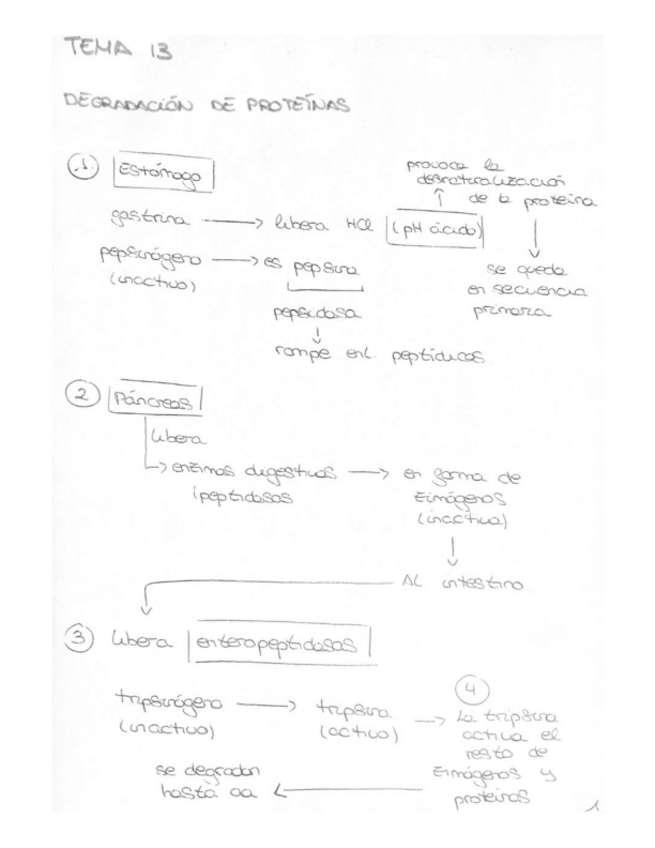 TEMA 13
DEGRADACIÓN DE PROTEÍNAS
1. Estómago
gastrina → libera HCl (pH ácido)
provoca la
desnaturalización
de la proteína
se queda
en secuencia
primaria
pepsinógeno → es pepsina
(inactivo)
pepsidasa
rompe enl. peptídicos
2 Páncreas
libera
→ enzimas digestivos → en forma de
(peptidasas
zimógenos
(inactiva)
AL intestino
3 libera enteropeptidasas
tripsinógeno → tripsina
(inactivo) (activo)
4
→ La tripsina
activa el
resto de
zimógenos y
proteinas
se degradan
hasta aa ←
1